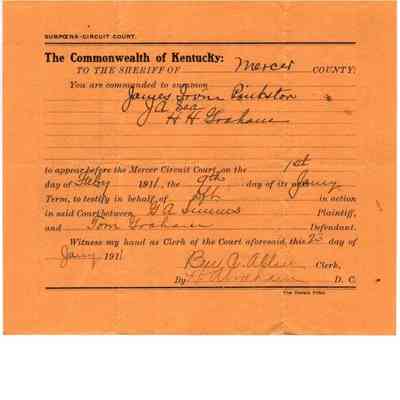 SUBPOENA-CIRCUIT COURT.
The Commonwealth of Kentucky:
TO THE SHERIFF OF Mercer COUNTY:
You are commanded to summon
James Pinkston
J A
H H Graham
to appear before the Mercer Circuit Court on the 1st
day of Feby 1911, the 9th day of its Jany
Term, to testify in behalf of in action
in said Court between G A Simms Plaintiff,
and Tom Graham Defendant.
Witness my hand as Clerk of the Court aforesaid, this 23 day of
Jany 1911
Clerk,
By D. C.